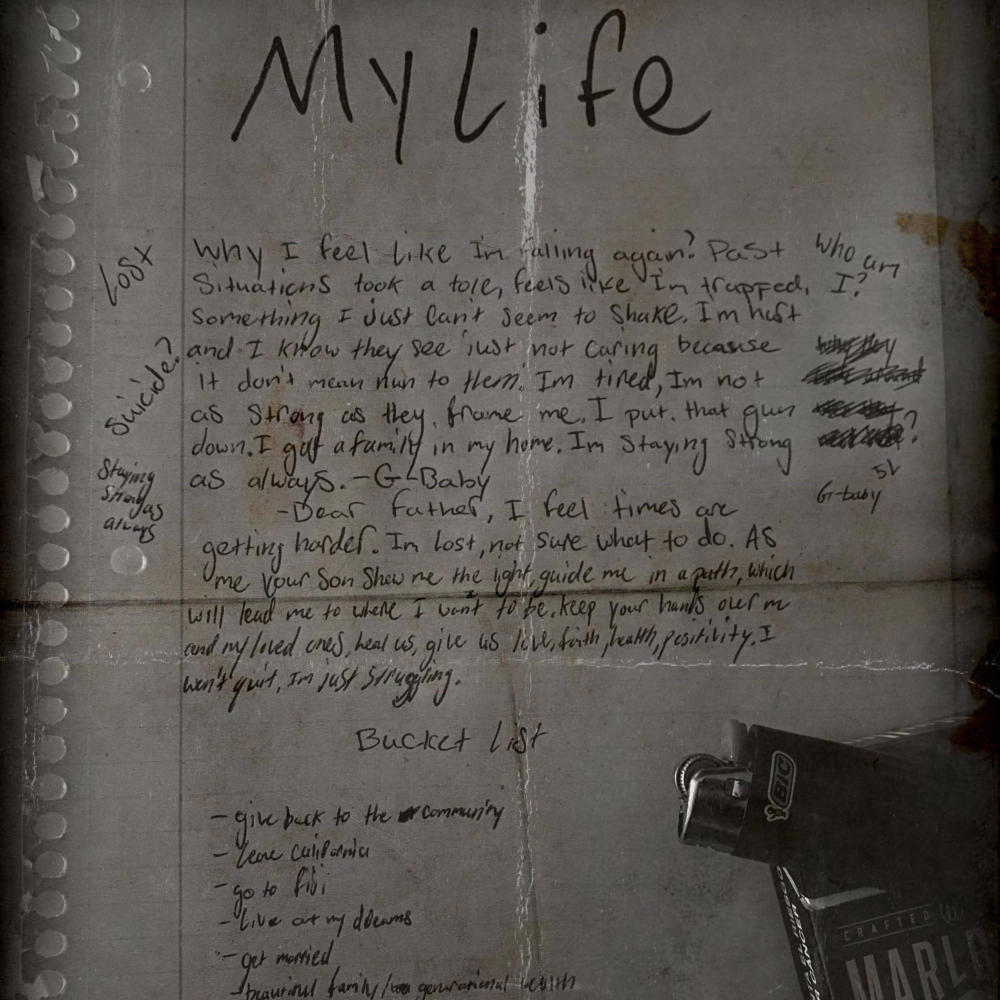 My Life
Why I feel like Im falling again? Past
Situations took a tole, feels like I'm trapped,
Something I just can't seem to shake. I'm hurt
and I know they see just not caring because
it don't mean nun to them. Im tired, Im not
as strong as they frame me. I put that gun
down. I got a family in my home. Im staying strong
as always. -G-Baby
-Dear Father, I feel times are
getting harder. Im lost, not sure what to do. AS
me your Son show me the light, guide me in a path, which
will lead me to where I want to be. keep your hands over me
and my loved ones, heal us, give us love, faith, health, positivity. I
won't quit, Im just struggling.
Lost
Suicide?
Staying
strong as
always
Who am
I?
?
G-baby
Bucket List
- give back to the community
- leave california
- go to fiji
- Live out my dreams
- get married
- beautiful family/ generational wealth
BIC
CRAFTED
MARL
CANCER